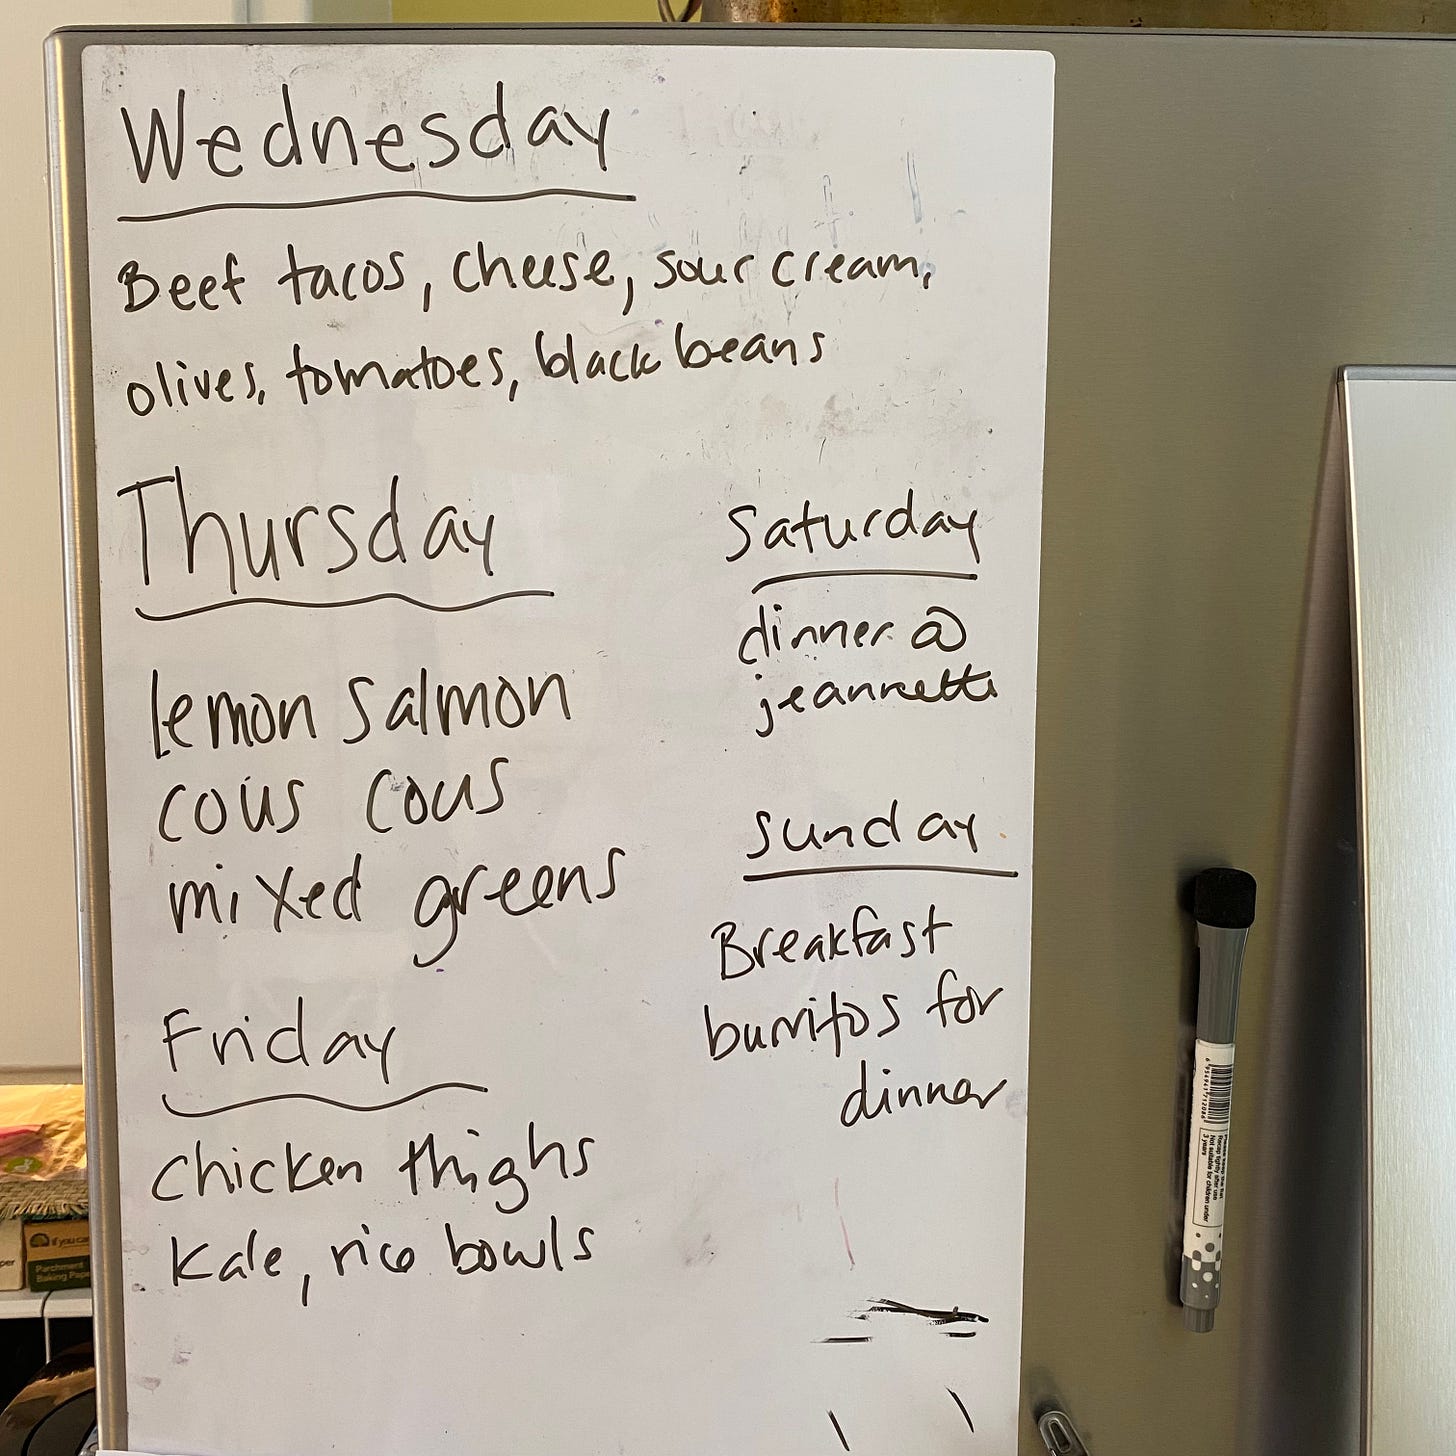 Wednesday
Beef tacos, cheese, sour cream,
olives, tomatoes, black beans
Thursday
lemon salmon
cous cous
mixed greens
Friday
chicken thighs
Kale, rice bowls
Saturday
dinner @
jeannette
Sunday
Breakfast
burritos for
dinner
if you ca
Parchment
Baking Pap
per
Recap tightly after use
Not suitable for children under
3 years